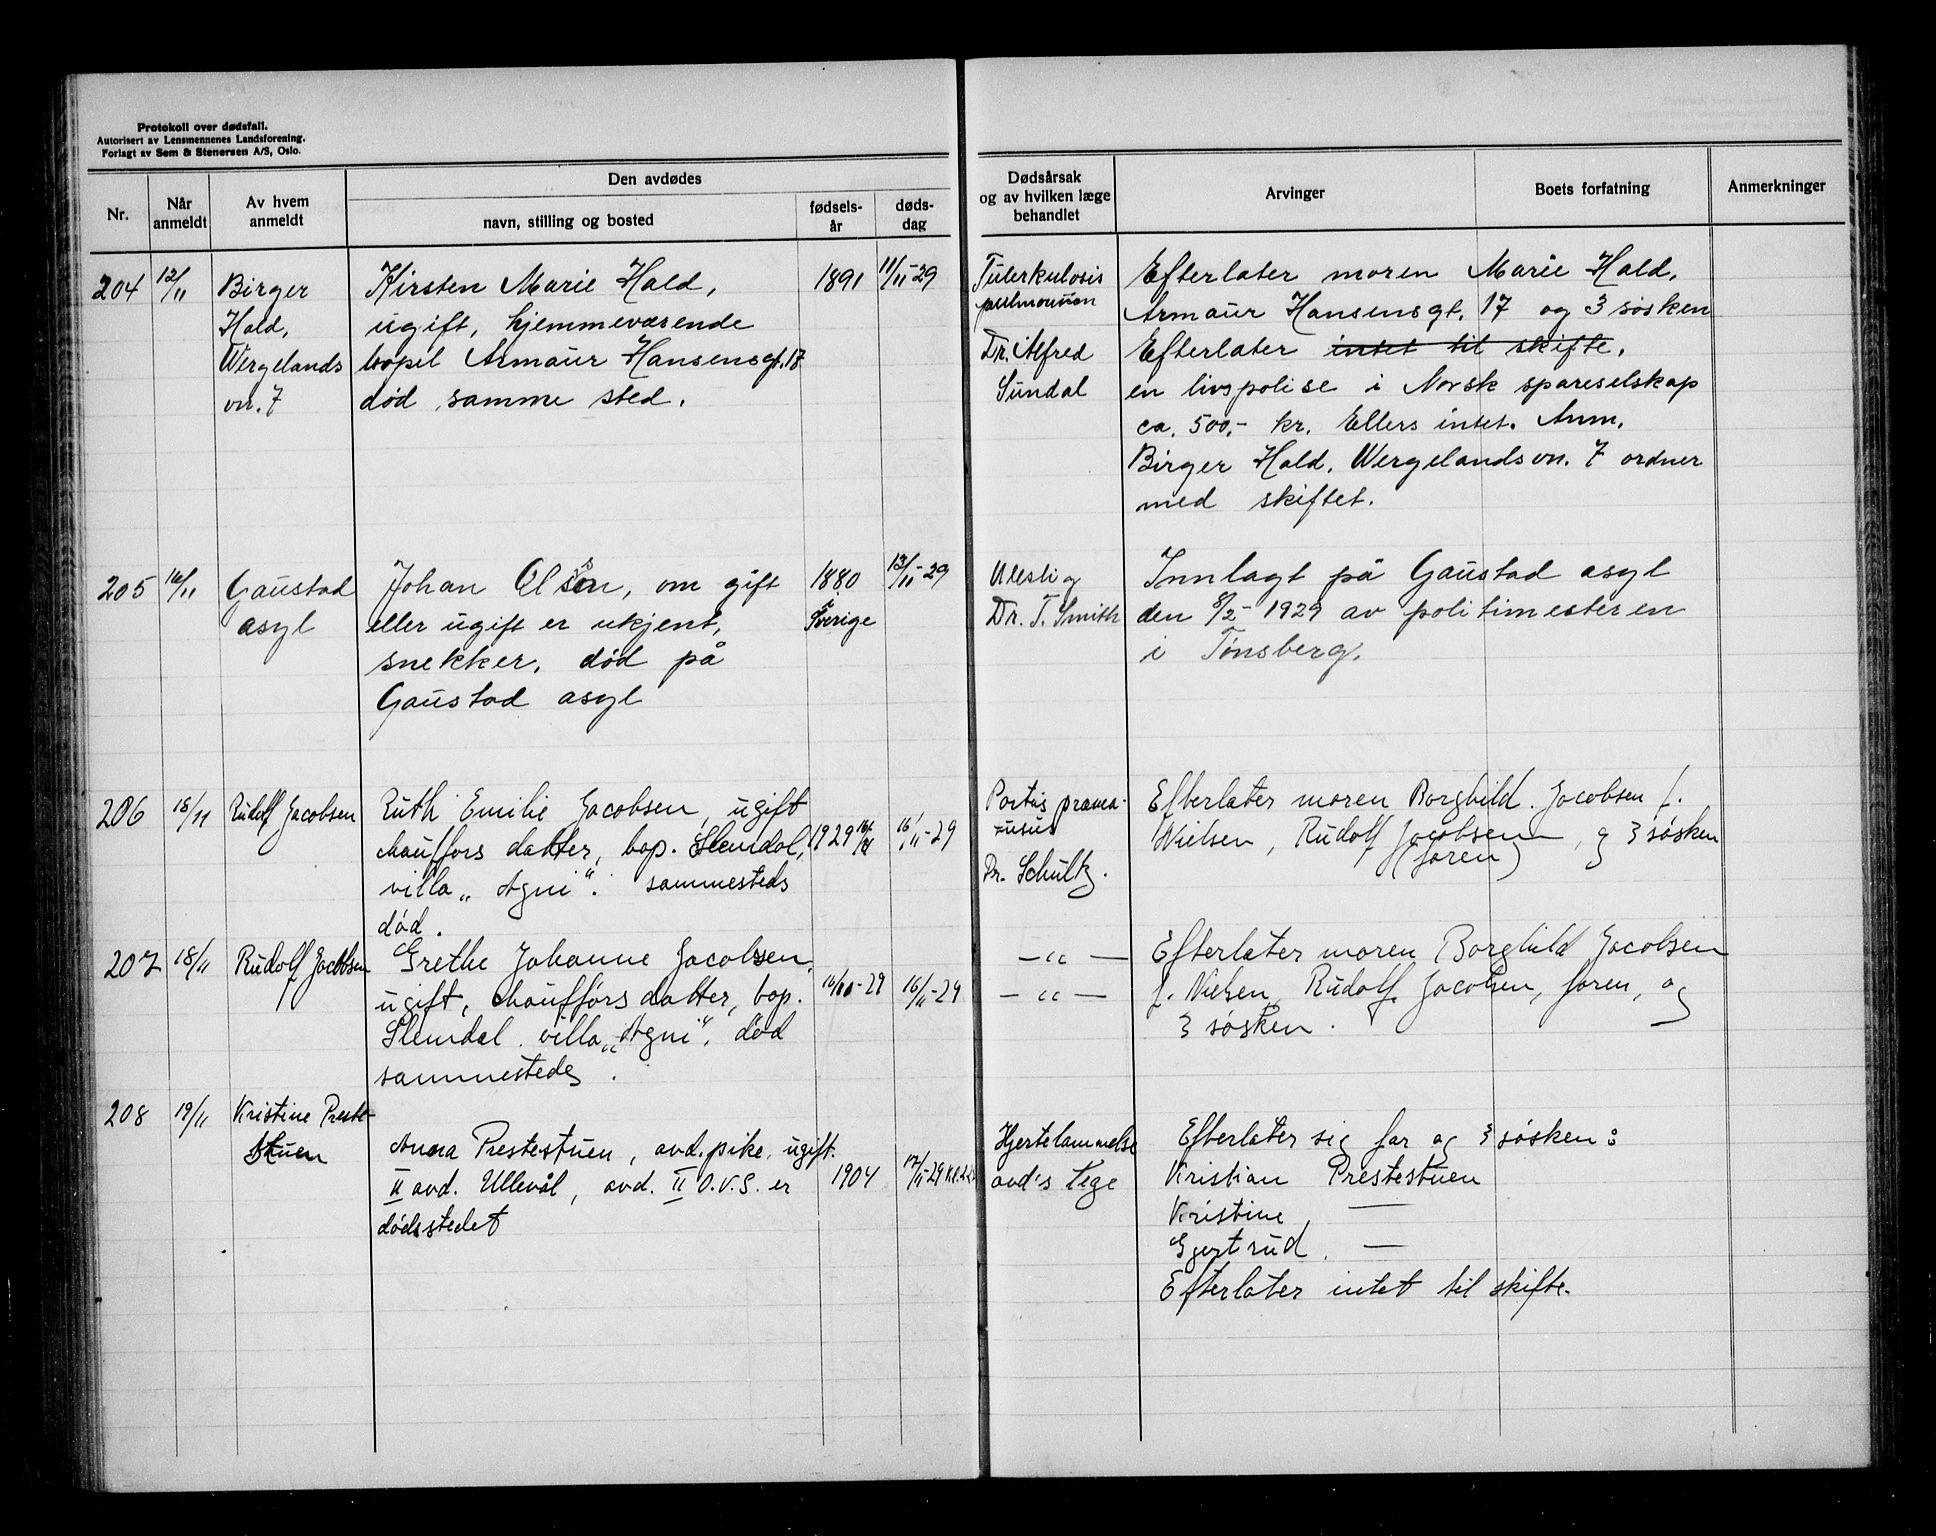 Protokoll over dødsfall.
Autorisert av Lensmennenes Landsforening.
Forlagt av Sem & Stenersen A/S, Oslo.
Nr.
Når anmeldt
Av hvem anmeldt
Den avdødes
navn, stilling og bosted
fødsels-
år
døds-
dag
Dødsårsak
og av hvilken læge
behandlet
Arvinger
Boets forfatning
Anmerkninger
204
12/11
Birger
Hald,
Wergelands
vn. 7
Kirsten Marie Hald,
ugift, hjemmeværende
bopel Armaur Hansensgt. 17
død samme sted.
1891
11/11-29
Tuberkulosis
pulmonum
Dr. Alfred
Sundal
Efterlater moren Marie Hald,
Armaur Hansensgt. 17 og 3 søsken
Efterlater intet til skifte.
en livspolise i Norsk spareselskap
ca. 500,- kr. Ellers intet. Anm.
Birger Hald, Wergelandsvn. 7 ordner
med skiftet.
205
16/11
Gaustad
asyl
Johan Olson, om gift
eller ugift er ukjent,
snekker, død på
Gaustad asyl
1880
Sverige
13/11-29
Dr. T. Smith
Innlagt på Gaustad asyl
den 8/2-1929 av politimesteren
i Tønsberg.
206
18/11
Rudolf Jacobsen
Ruth Emilie Jacobsen, ugift
chauffors datter, bop. Slemdal,
villa „Agni". sammesteds
død.
1929
16/11-29
Partus præma-
turus
Dr. Schultz.
Efterlater moren Borghild. Jacobsen f.
Nielsen, Rudolf Jacobsen, og 3 søsken
(faren)
207
18/11
Rudolf Jacobsen
Grethe Johanne Jacobsen,
ugift, chauffórs datter, bop.
Slemdal. villa „Agni", død
sammesteds.
16/11-29
16/11-29
— " —
— " —
Efterlater moren Borghild Jacobsen
f. Nielsen, Rudolf Jacobsen, faren, og
3 søsken.
208
19/11
Kristine Preste-
stuen
Anna Prestestuen, avd. pike, ugift.
II avd. Ullevål, avd. II O.V.S. er
dødsstedet
1904
17/11-29
Hjertelammelse
avd's læge
Efterlater sig far og 3 søsken:
Kristian Prestestuen
Kristine, —
Gjertrud. —
Efterlater intet til skifte.